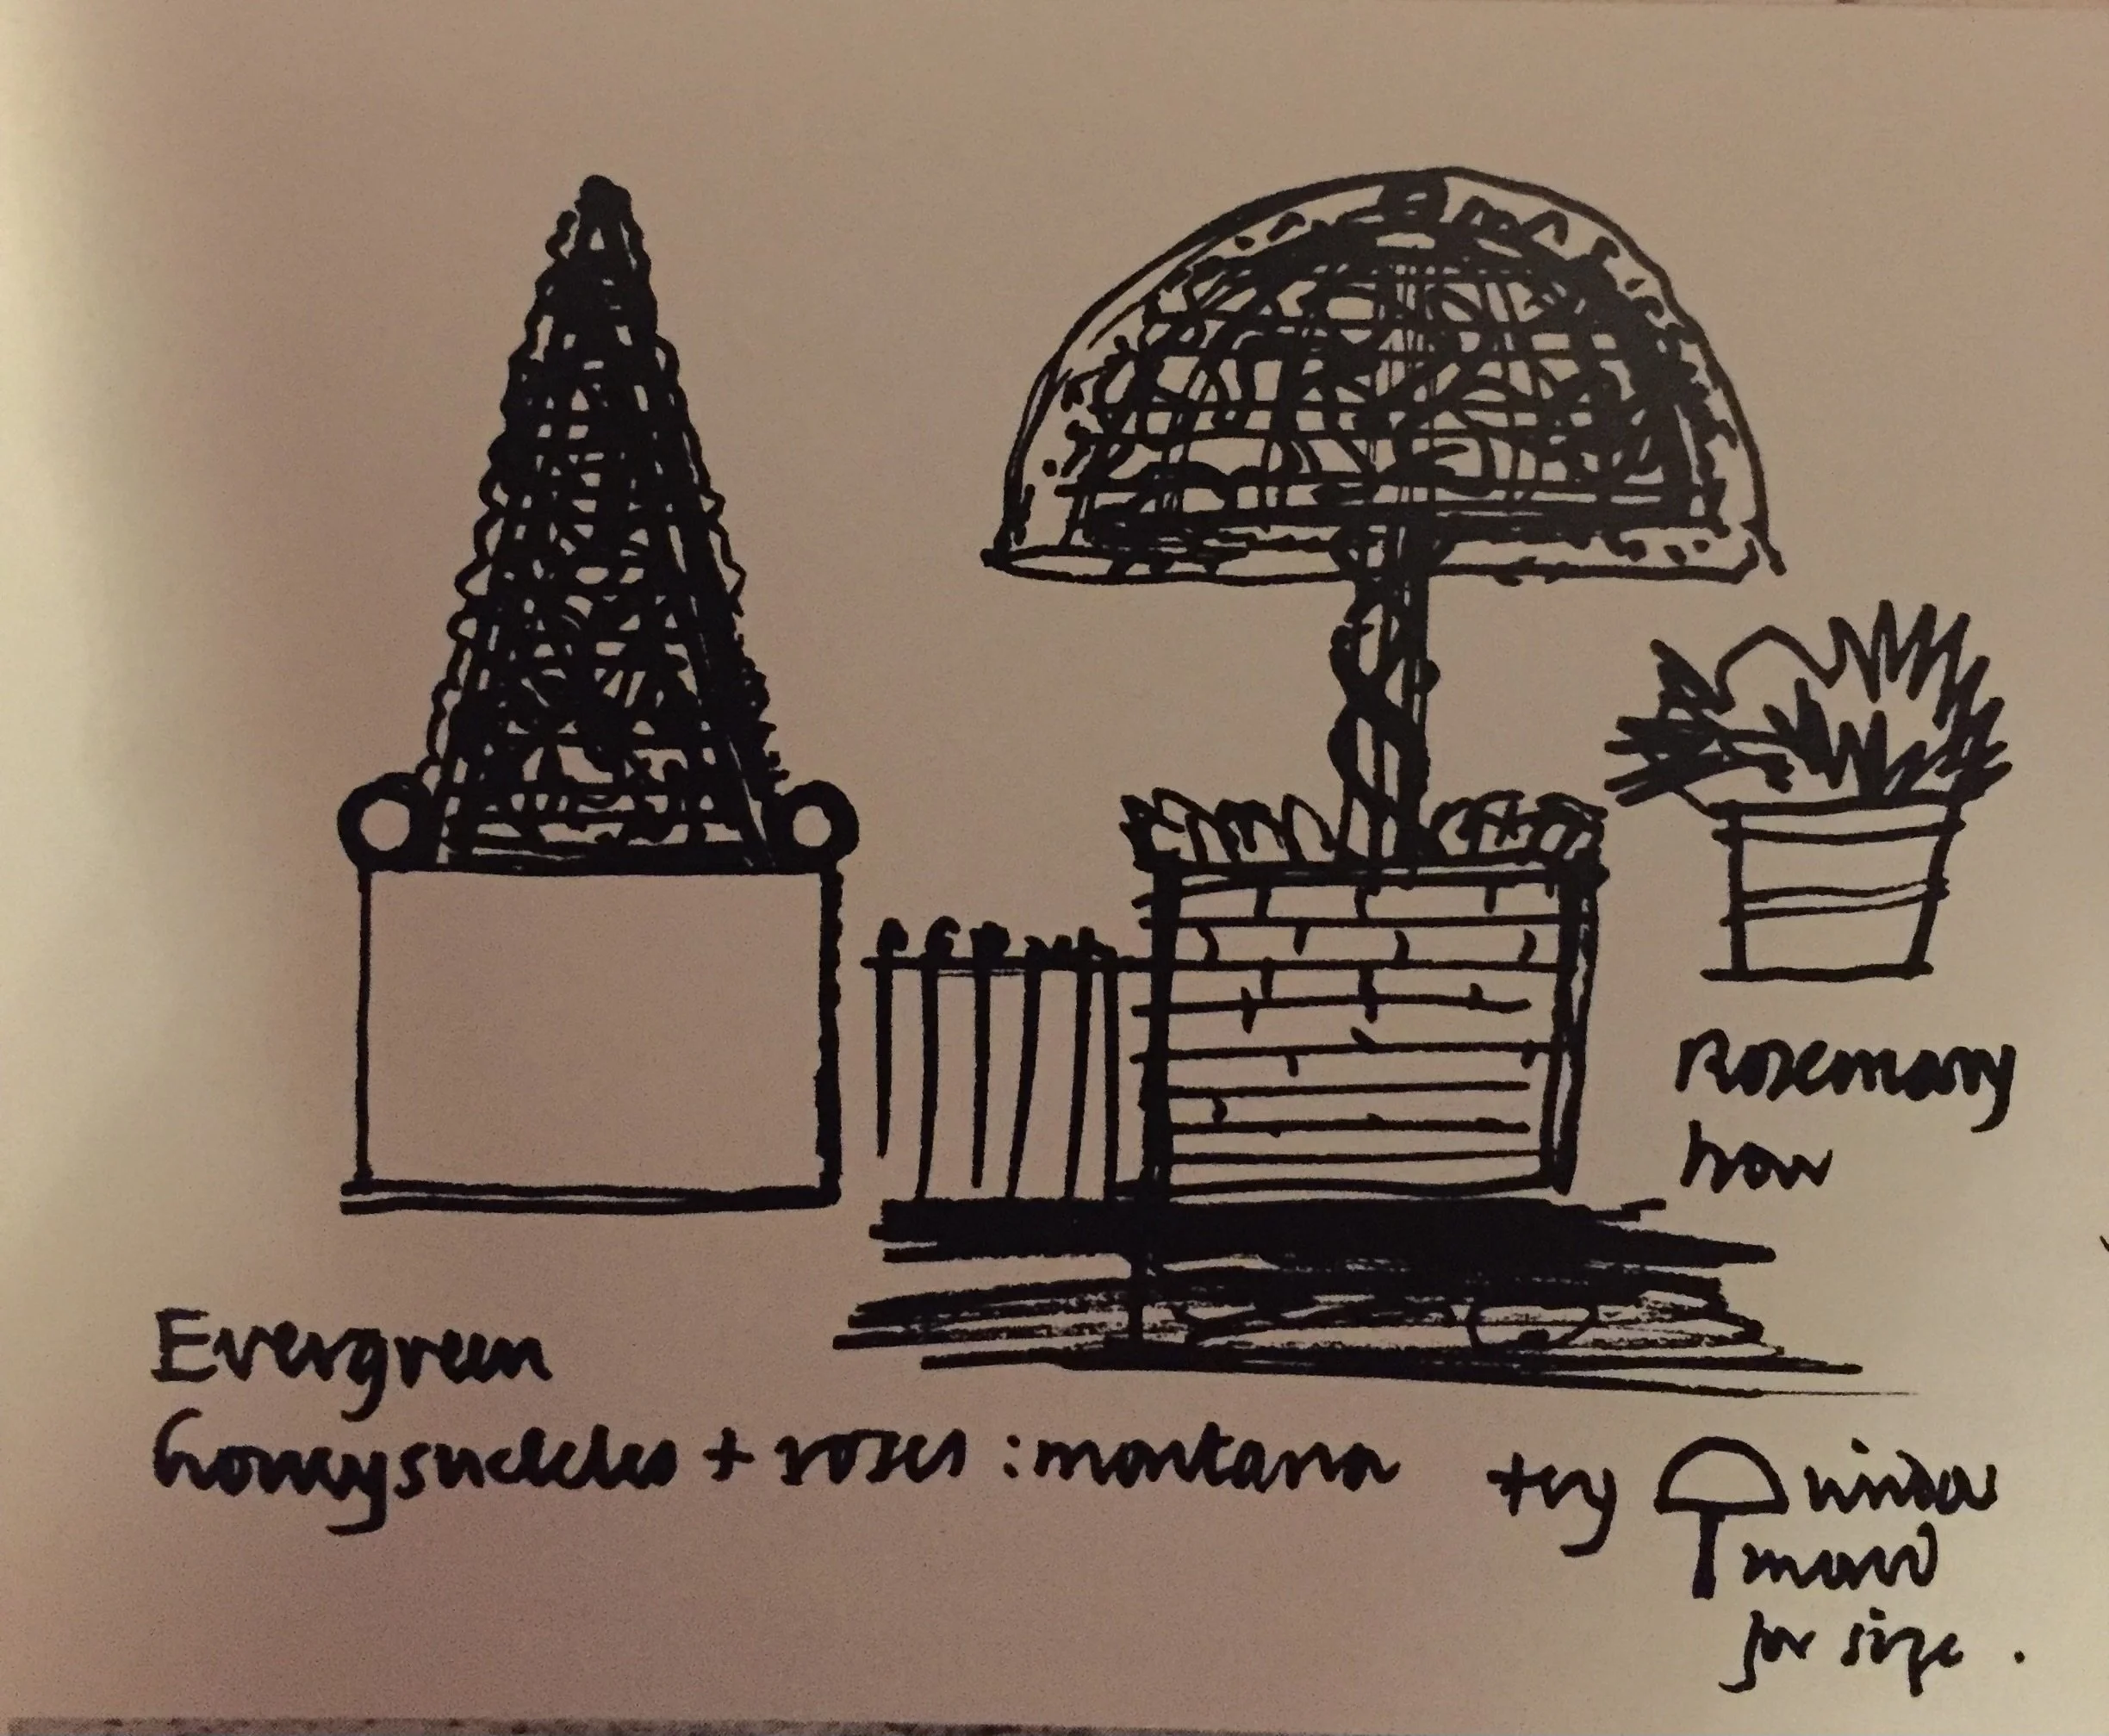 Rosemary
how
Evergreen
honeysuckles + roses : montana
try window
for size .